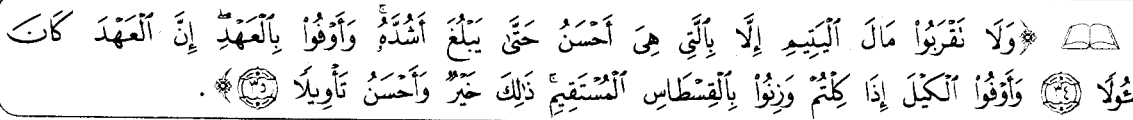 ﴿وَلَا نَقْرَبُوا۟ مَالَ ٱلْيَتِيمِ إِلَّا بِٱلَّتِى هِىَ أَحْسَنُ حَتَّىٰ يَبْلُغَ أَشُدَّهُۥ ۚ وَأَوْفُوا۟ بِٱلْعَهْدِ ۖ إِنَّ ٱلْعَهْدَ كَانَ
ـُٔولًا ﴿٣٤﴾ وَأَوْفُوا۟ ٱلْكَيْلَ إِذَا كِلْتُمْ وَزِنُوا۟ بِٱلْقِسْطَاسِ ٱلْمُسْتَقِيمِ ۚ ذَٰلِكَ خَيْرٌ وَأَحْسَنُ تَأْوِيلًا ﴿٣٥﴾﴾ .